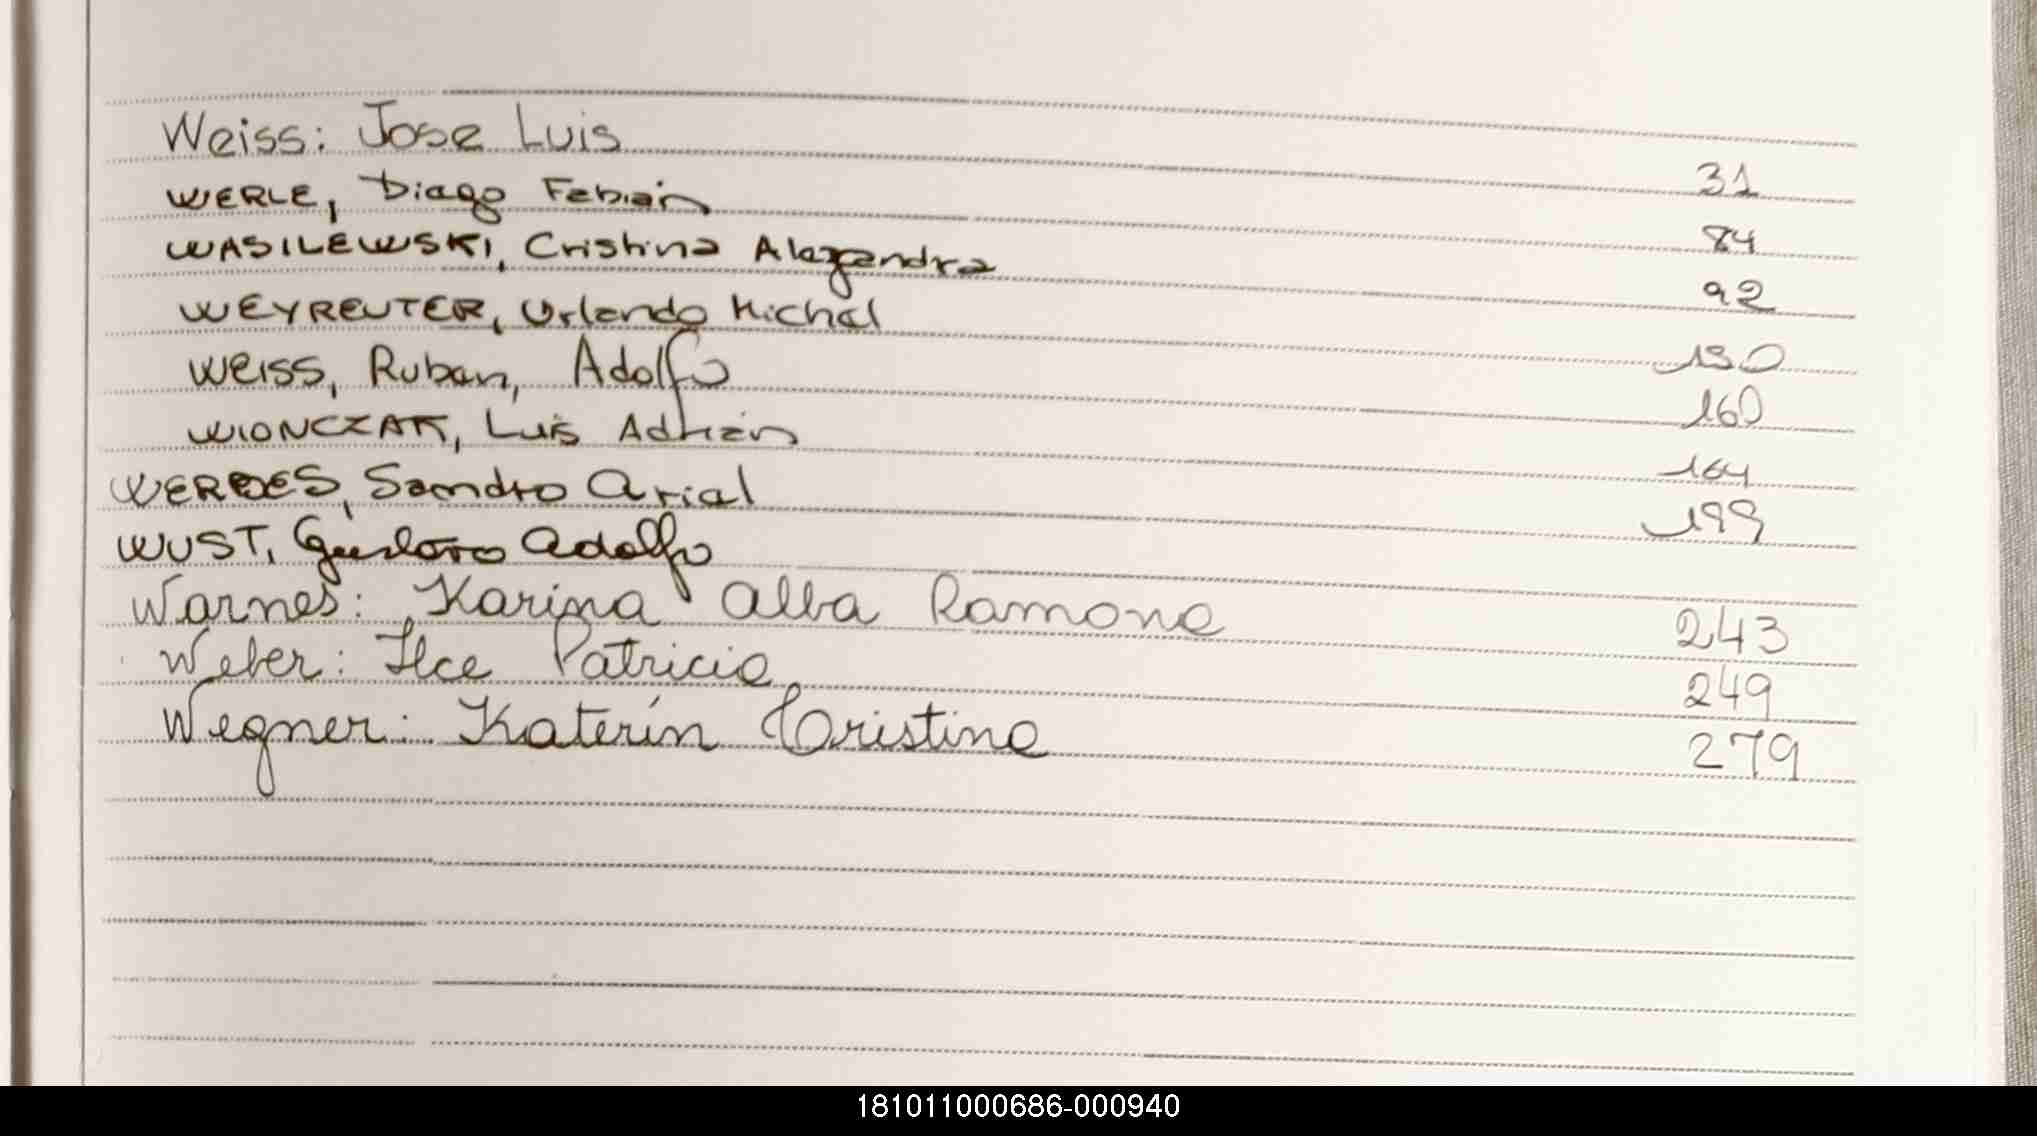 Weiss: Jose Luis 31
WERLE, Diego Fabián 84
WASILEWSKI, Cristina Alejandra 92
WEYREUTER, Orlando Michel 150
WEISS, Ruben, Adolfo 160
WIONCZAK, Luis Adrián 164
Sandro Ariel 199
WUST, Gustavo Adolfo
Warnes: Karina Alba Ramona 243
Weber: Ilce Patricia 249
Wegner: Katerín Cristina 279
181011000686-000940